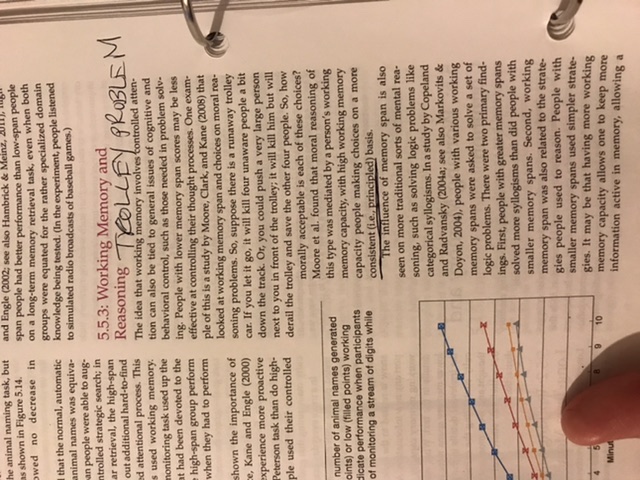 he animal naming task, but
as shown in Figure 5.14.
owed no decrease in
l that the normal, automatic
animal names was equiva-
an people were able to aug-
ntrolled strategic search; in
ar retrieval, the high-span
out additional hard-to-find
d attentional process. This
s used working memory.
monitoring task used up the
t had been devoted to the
high-span group perform
when they had to perform
shown the importance of
e, Kane and Engle (2000)
experience more proactive
Peterson task than do high-
ple used their controlled
and Engle (2002; see also Hambrick & Meinz, 2011),
span people had better performance than low-span people
on a long-term memory retrieval task, even when both
groups were equated for the rather specialized domain
knowledge being tested. (In the experiment, people listened
to simulated radio broadcasts of baseball games.)
5.5.3: Working Memory and
Reasoning TROLLEY PROBLEM
The idea that working memory involves controlled atten-
tion can also be tied to general issues of cognitive and
behavioral control, such as those needed in problem solv-
ing. People with lower memory span scores may be less
effective at controlling their thought processes. One exam-
ple of this is a study by Moore, Clark, and Kane (2008) that
looked at working memory span and choices on moral rea-
soning problems. So, suppose there is a runaway trolley
car. If you let it go, it will kill four unaware people a bit
down the track. Or, you could push a very large person
next to you in front of the trolley; it will kill him but will
derail the trolley and save the other four people. So, how
morally acceptable is each of these choices?
Moore et al. found that moral reasoning of
this type was mediated by a person's working
memory capacity, with high working memory
capacity people making choices on a more
consistent (i.e., principled) basis.
The influence of memory span is also
seen on more traditional sorts of mental rea-
soning, such as solving logic problems like
categorical syllogisms. In a study by Copeland
and Radvansky (2004a; see also Markovits &
Doyon, 2004), people with various working
memory spans were asked to solve a set of
logic problems. There were two primary find-
ings. First, people with greater memory spans
solved more syllogisms than did people with
smaller memory spans. Second, working
memory span was also related to the strate-
gies people used to reason. People with
smaller memory spans used simpler strate-
gies. It may be that having more working
memory capacity allows one to keep more
information active in memory, allowing a
number of animal names generated
oints) or low (filled points) working
dicate performance when participants
of monitoring a stream of digits while
4
8
9
10
Minut